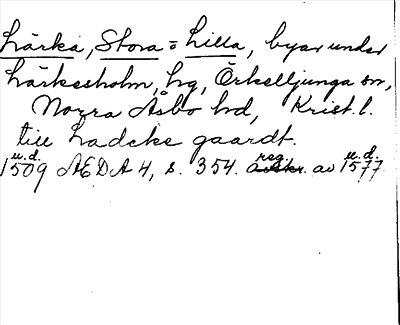 Lärka, Stora o Lilla, byar under
Lärkesholm, hg, Örkelljunga sn,
Norra Åsbo hd, Krist. l.
till Ladcke gaardt.
u.d. 1509 ÆDA 4, s. 354. reg. av u.d. 1577